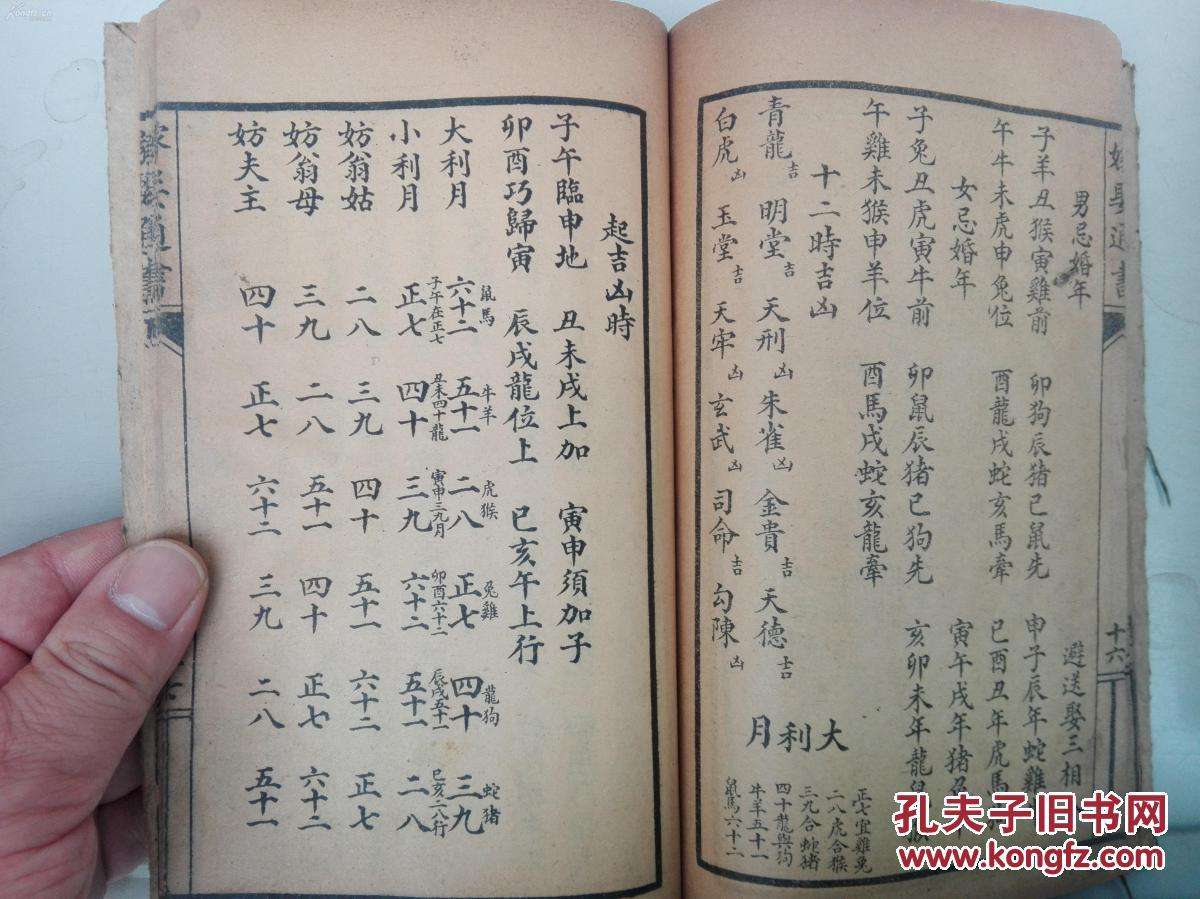 嫁娶通書
十六
男忌婚年
子羊丑猴寅雞前 卯狗辰猪巳鼠先
午牛未虎申兔位 酉龍戌蛇亥馬牽
女忌婚年
子兔丑虎寅牛前 卯鼠辰猪巳狗先
午雞未猴申羊位 酉馬戌蛇亥龍牽
避送娶三相
申子辰年蛇雞
巳酉丑年虎馬
寅午戌年猪
亥卯未年龍鼠
十二時吉凶
青龍吉 明堂吉 天刑凶 朱雀凶 金貴吉 天德吉
白虎凶 玉堂吉 天牢凶 玄武凶 司命吉 勾陳凶
大利月
正七宜雞兔
二八虎合猴
三九合蛇猪
四十龍與狗
牛羊五十一
鼠馬六十二
起吉凶時
子午臨申地 丑未戌上加 寅申須加子
卯酉巧歸寅 辰戌龍位上 巳亥午上行
鼠馬 牛羊 虎猴 兔雞 龍狗 蛇猪
大利月 六十二 五十一 二八 正七 四十 三九
子午在正七 丑未四十龍 寅申三九月 卯酉六十二 辰戌五十一 巳亥二八行
小利月 正七 四十 三九 六十二 五十一 二八
妨翁姑 二八 三九 四十 五十一 六十二 正七
妨翁母 三九 二八 五十一 四十 正七 六十二
妨夫主 四十 正七 六十二 三九 二八 五十一
孔夫子旧书网
www.kongfz.com
Kongfz.cn